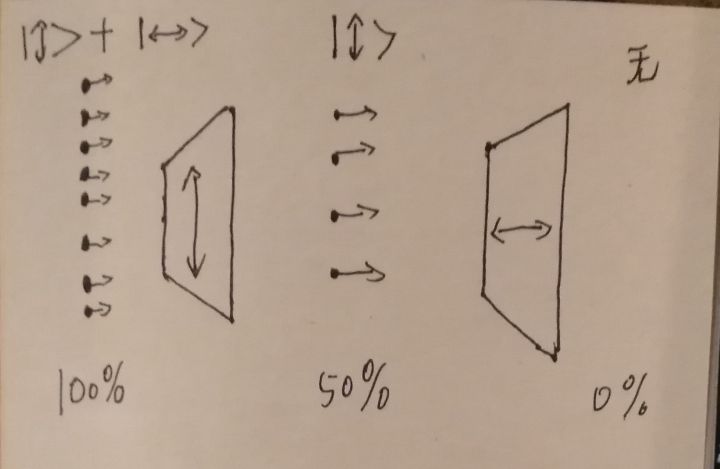 |↕> + |↔> |↕> 无
100% 50% 0%